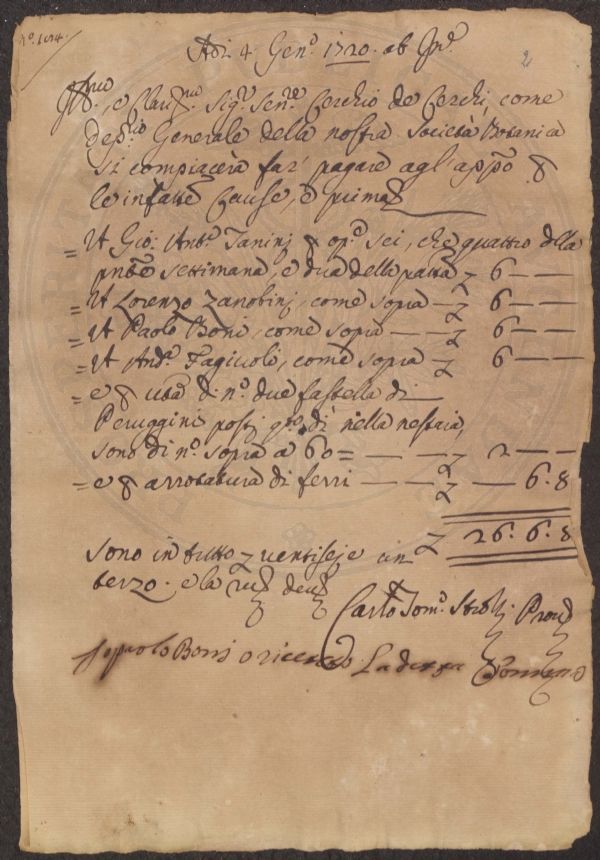 Adi 4. Gen.º 1720. ab Inc.
2
e Clariss.mo Sig.r Sen.re Cerchio de Cerchi, come
dep.rio Generale della nostra Società Botanica
si compiacerà far' pagare agl' appõ
le infatte Cause, e prima
= A Gio: Ant.º Tanini & op.e sei, che quattro della
pnte settimana, e due della patta 6 — —
= A Lorenzo Zanobini, come sopra — 6 — —
= A Paolo Boni, come sopra — — 6 — —
= A And.a Fagiuoli, come sopra 6 — —
= e & di n.º due fastella di
Peruggini posti q.to dì nella nestaia,
sono di n.º sopra a 60 = — — 2 — —
= e & arrotatura di ferri — — — 6. 8
26. 6. 8
sono in tutto ventiseje un
terzo. e la
Carlo Tom.º Strozzi Prov.
Io Paolo Boni ò ricevuto La detta Somma